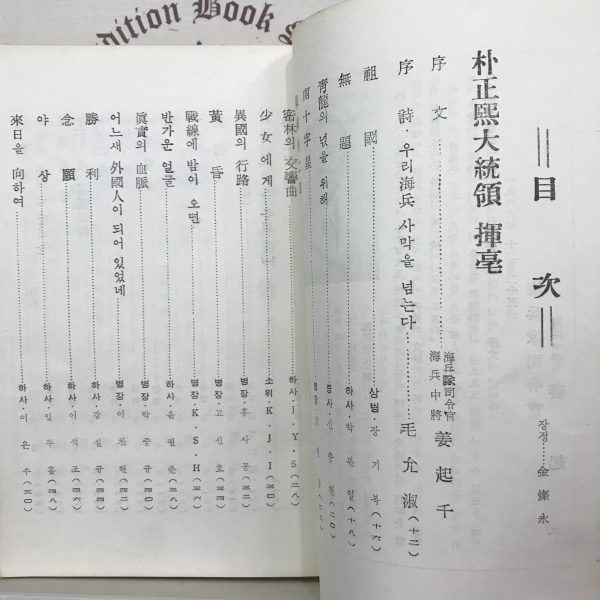 dition Book S
目 次
장정……金 滌 永
朴正熙大統領 揮毫
序 文……海兵隊司令官 海兵中將 姜 起 千
序 詩·우리海兵 사막을 넘는다……毛 允 淑(一二)
祖 國……상병·장 기 복(一六)
無 題……하사·박 판 일(一八)
靑龍의 넋을 위해……중사·신
南十字星
密林의 交響曲……하사·J·Y·S(二八)
少女에게……소위·K·J·I(三〇)
異國의 行路……병장·홍 사 공
黃 昏……병장·고 신 호
戰線에 밤이 오면……병장·K·S·H
반가운 얼굴……하사·윤 원 춘(三八)
眞實의 血脈……병장·박 중 규
어느새 外國人이 되어 있었네……병장·이 찬 헌
勝 利……하사·강 실 규
念 願……하사·이 석 조
야 상……하사·임 두 홀(四八)
來日을 向하여……하사·이 은 수